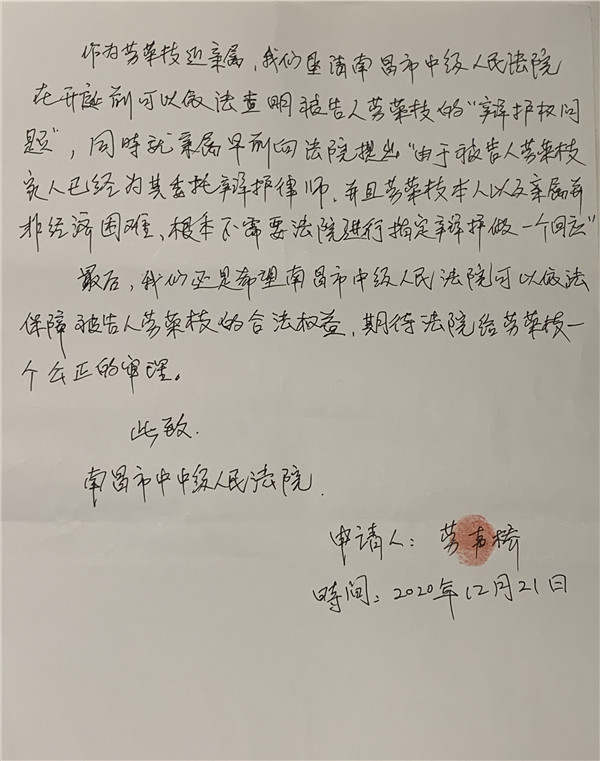 作为劳荣枝近亲属，我们恳请南昌市中级人民法院
在开庭前可以依法查明被告人劳荣枝的“辩护权问
题”，同时就亲属早前向法院提出“由于被告人劳荣枝
家人已经为其委托辩护律师，并且劳荣枝本人以及亲属并
非经济困难，根本不需要法院进行指定辩护做一个回应”
最后，我们还是希望南昌市中级人民法院可以依法
保障被告人劳荣枝的合法权益，期待法院给劳荣枝一
个公正的审理。
此致.
南昌市中中级人民法院.
申请人：劳声桥
时间：2020年12月21日